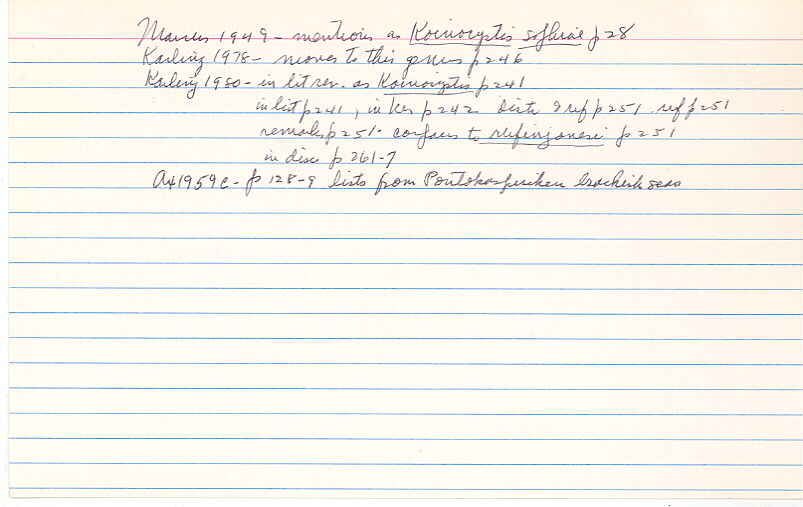 Marcus 1949 - mentions as Koinocystis sophiae p 28
Karling 1978 - moves to this genus p 246
Karling 1980 - in lit rev. as Koinocystis p 241
in list p 241, in key p 242 Distr & ref p 251 . ref p 251
remarks p 251 - compares to p 251
in disc p 261-7
Ax 1959c - p 128-9 lists from Pontokaspischen brackish seas